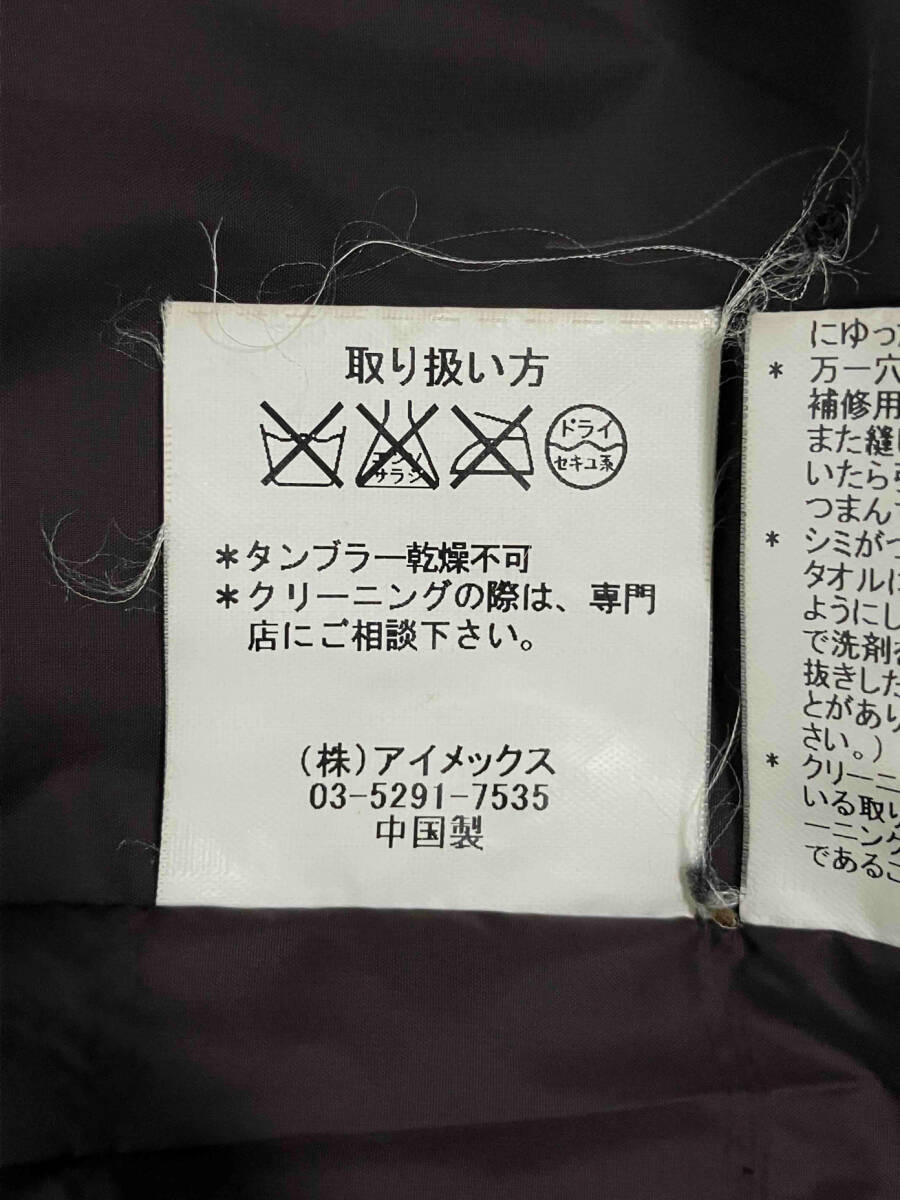 取り扱い方
エンソ
サラシ
ドライ
セキユ系
＊タンブラー乾燥不可
＊クリーニングの際は、専門
店にご相談下さい。
(株)アイメックス
03-5291-7535
中国製
にゆっ
＊ 万一穴
補修用
また縫
いたら
つまん
＊ シミがつ
タオルに
ようにし
で洗剤
抜きした
とがあり
さい。)
＊ クリーニ
いる取り
ーニング
であるこ